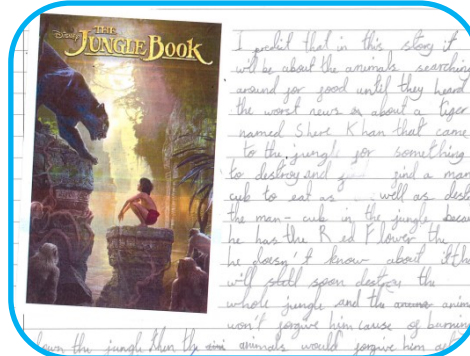 Disney
THE
JUNGLE BOOK
I predit that in this story it
will be about the animals searching
around for good until they heard
the worst news about a tiger
named Shere Khan that came
to the jungle for something
to destroy and find a man
cub to eat as well as dest
the man-cub in the jungle becau
he has the Red Flower the
he doesn't know about
will soon destroy the
whole jungle and the anim
won't forgive him cause of burning
down the jungle then the animals would forgive him